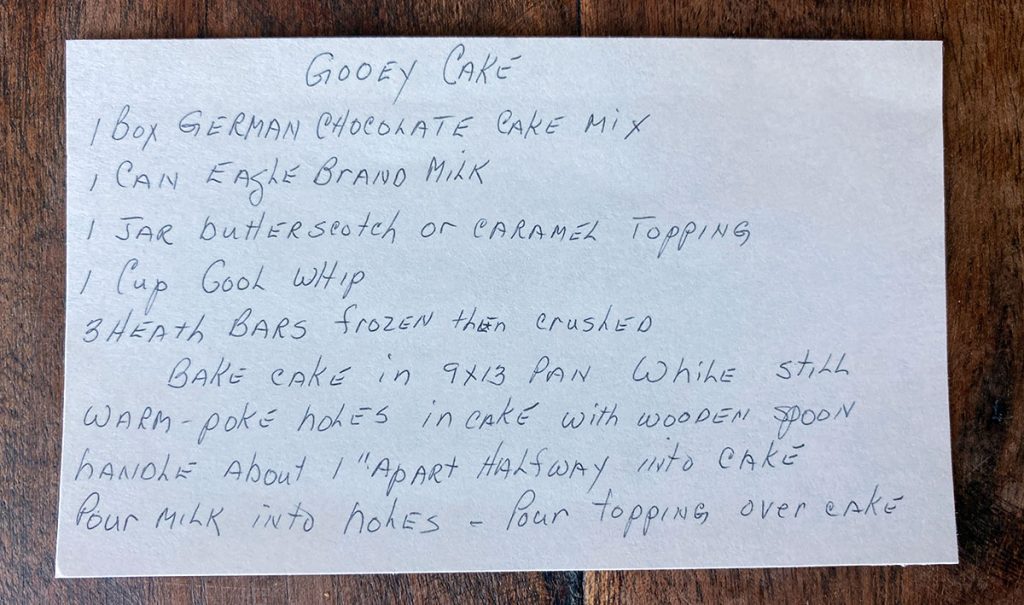 Gooey Cake
1 Box German Chocolate Cake Mix
1 Can Eagle Brand Milk
1 Jar butterscotch or caramel Topping
1 Cup Cool Whip
3 Heath Bars frozen then crushed
Bake cake in 9x13 Pan While still
warm - poke holes in cake with wooden spoon
handle about 1" apart Halfway into cake
Pour milk into holes - Pour topping over cake